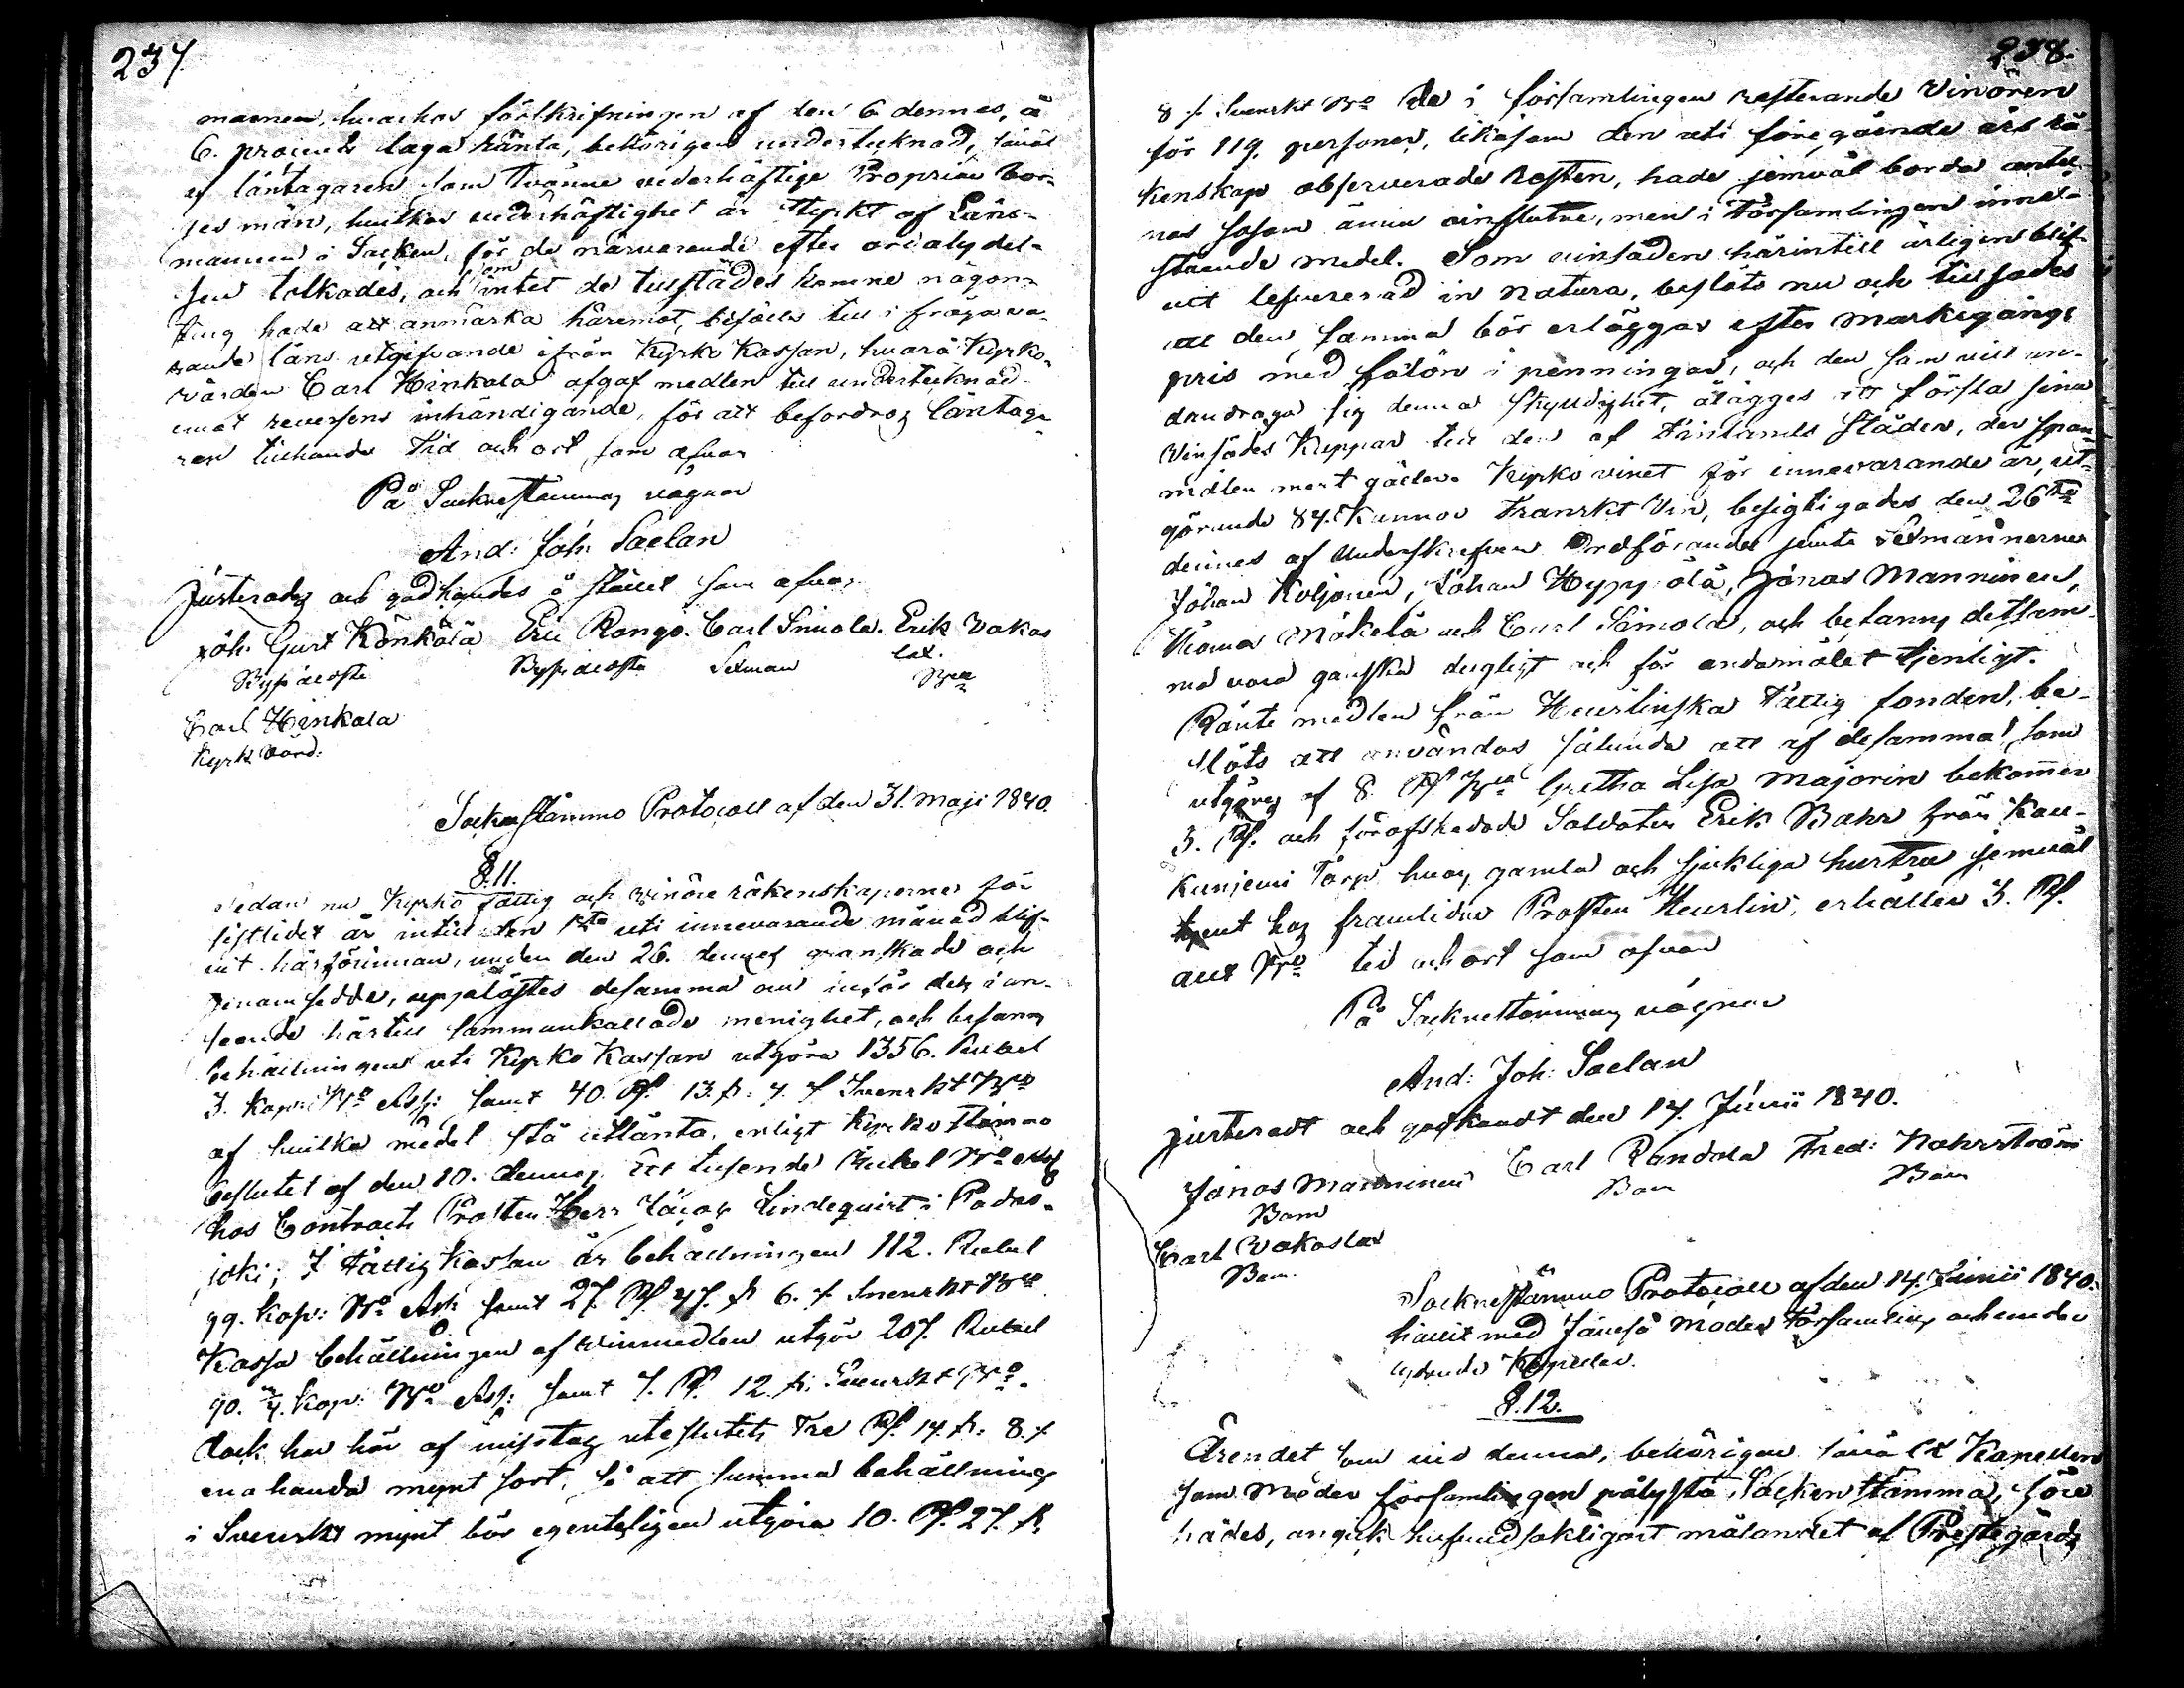 237.
mannen, hvarhos förskrifningen af den 6 dennes, à
6. procents laga ränta, behörigen undertecknad, såväl
af låntagaren som tvänne vederhäftige Proprieu bor-
ges män, hvilkas vederhäftighet är styrkt af Läns-
mannen i Socken, för de närvarande efter ordalydel-
sen tolkades, och om intet de tillstädes komne någon-
ting hade att anmärka häremot, bifölls till i fråga va-
rande låns utgifvande ifrån Kyrko Kassan, hvarå Kyrko-
värden Carl Hinkala afgaf medlen till undertecknad
emot reversens inhändigande, för att befordras låntaga-
ren tillhanda Tid och ort som ofvan
På Sockne stämmans vägnar
And: Joh: Saelan
Justerades och godkändes å stället som ofvan
Joh. Gust Könkölä Eric Rongo. Carl Simola. Erik Vakas
Byss äldste Byss äldste Sexman
Carl Hinkala
Kyrk Värd:
Sockne stämmo Protocoll af den 31. Maji 1840.
§. 11.
Sedan nu Kyrko fattig och vinöre räkenskaperne för
sistlidet år intill den 1sta uti innevarande månad blif-
vit härförinnan, under den 26. dennes granskade och
genomsedde, upplästes desamma nu inför den i an-
seende härtill sammankallade menighet, och befanns
behållningen uti Kyrko Kassan utgöra 1356. Rubel
3. Kop: Bco Ass: samt 40. Rf. 13. s. 7. r Svenskt Bco
af hvilka medel stå utlånta, enligt Kyrko stämmo
beslutet af den 10. dennes Ett tusende Rubel Bco Ass
hos Contracts Prosten Herr Jacob Lindequist i Padas-
joki; I Fattig Kassan är behållningen 112. Rubel
99. Kop: Bco Ass: samt 27. Rf 47. s 6. r Svenskt Bco
Kassa behållningen af vinmedlen utgör 207. Rubel
90. Kop: Bco Ass: samt 7. Rf. 12. s: Svenskt Bco.
dock har här af misstag uteslutits Tre Rf. 14. s: 8. r
enahanda mynt sort, så att summa behållning
i Svenskt mynt bör egenteligen utgöra 10. Rf. 27. s.
238.
8 r Svenskt Bco De i församlingen resterande Vinören
för 119. personer, likasom den uti föregående års rä-
kenskap observerade Resten, hade jemväl bordt anteck-
nas såsom ännu oinflutne, men i Församlingen inne-
stående medel. Som vinsäden härintill årligen blif-
vit lefvererad in natura, beslöts nu och tillsades
att den samma bör erläggas efter Markegångs
pris med fålön i penningar, och den som vill un-
dandraga sig denna skyldighet, ålägges att forsla sina
Vinsädes Kappar till den af Finlands Städer, der span-
målen mest gäller. Kyrko vinet för innevarande år, ut-
görande 84. Kannor Franskt Vin, besigtigades den 26te
dennes af Underskrefven Ordförande jemte Sexmännerne
Johan Koljonen, Johan Hyppölä, Jonas Manninen,
Thomas Mäkelä och Carl Simola, och befanns detsam-
ma vara ganska dugligt och för ändamålet tjenligt.
Ränte medlen från Heurlinska Fattig fonden, be-
slöts att användas sålunda att af desamma, som
utgöras af 8. Rf. Bco Gretha Lisa Majorin bekommer
3. Rf. och för afskedade Soldaten Erik Bahr från Kau-
kunjemi Torp hvars gamla och sjukliga hustru jemväl
tjent hos framlidne Prosten Heurlin, erhåller 3. Rf.
allt Bco tid och ort som ofvan
På Socknestämmans vägnar
And: Joh: Saelan
Justeradt och godkändt den 14. Junii 1840.
Jonas Manninen Carl Randala Fred: Nohrström
Bom Bom Bom
Carl Vakoslax
Bom.
Socknestämmo Protocoll af den 14. Junii 1840.
hållit med Jämsä Moder Församling och under
lydande Kapeller.
§. 12.
Ärendet som vid denna, behörigen såväl i Kapellen
som Moder församlingen pålysta Socken stämma, före
hades, angick hufvudsakligast målandet af Prestegårds